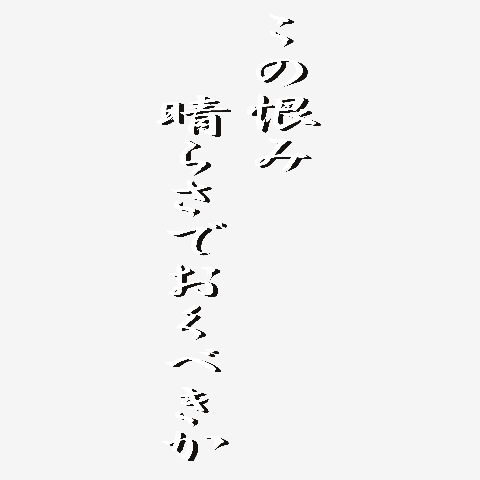 この恨み
晴らさでおくべきか